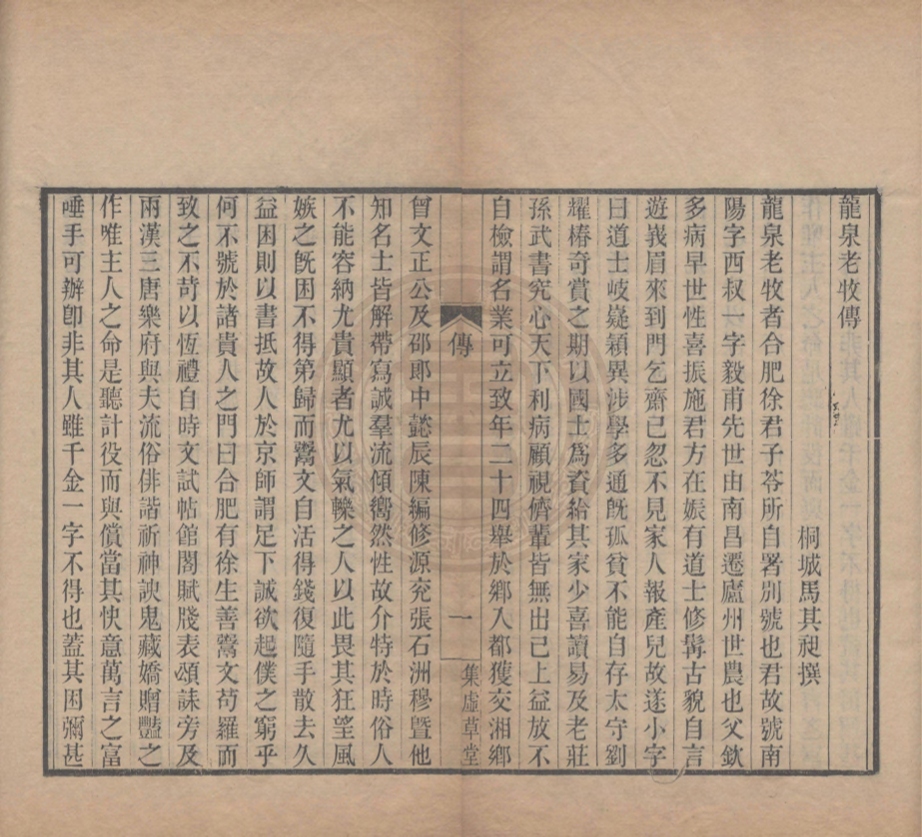 龍泉老牧傳
桐城馬其昶撰
龍泉老牧者合肥徐君子苓所自署別號也君故號南
陽字西叔一字毅甫先世由南昌遷廬州世農也父欽
多病早世性喜振施君方在娠有道士修髯古貌自言
遊峩眉來到門乞齋已忽不見家人報產兒故遂小字
曰道士岐嶷穎異涉學多通旣孤貧不能自存太守劉
耀椿奇賞之期以國士爲資給其家少喜讀易及老莊
孫武書究心天下利病顧視儕輩皆無出己上益放不
自檢謂名業可立致年二十四舉於鄉入都獲交湘鄉
傳
一
集虛草堂
曾文正公及邵郎中懿辰陳編修源兖張石洲穆曁他
知名士皆解帶寫誠羣流傾嚮然性故介特於時俗人
不能容納尤貴顯者尤以氣轢之人以此畏其狂望風
嫉之旣困不得第歸而鬻文自活得錢復隨手散去久
益困則以書抵故人於京師謂足下誠欲起僕之窮乎
何不號於諸貴人之門曰合肥有徐生善鬻文苟羅而
致之不苛以恆禮自時文試帖館閣賦牋表頌誄旁及
兩漢三唐樂府與夫流俗俳諧祈神諛鬼藏嬌贈豔之
作唯主人之命是聽計役而與償當其快意萬言之富
唾手可辦卽非其人雖千金一字不得也蓋其困彌甚